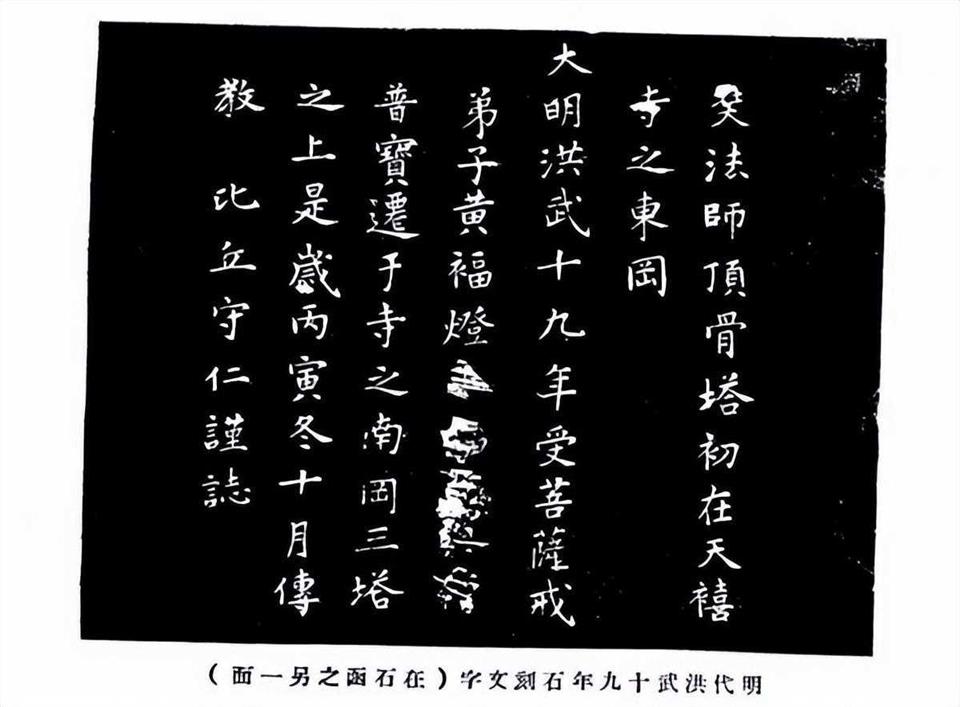 奘法師頂骨塔初在天禧
寺之東岡
大明洪武十九年受菩薩戒
弟子黃福燈
普寶遷于寺之南岡三塔
之上是歲丙寅冬十月傳
教 比丘守仁謹誌
明代洪武十九年石刻文字(在石函之另一面)